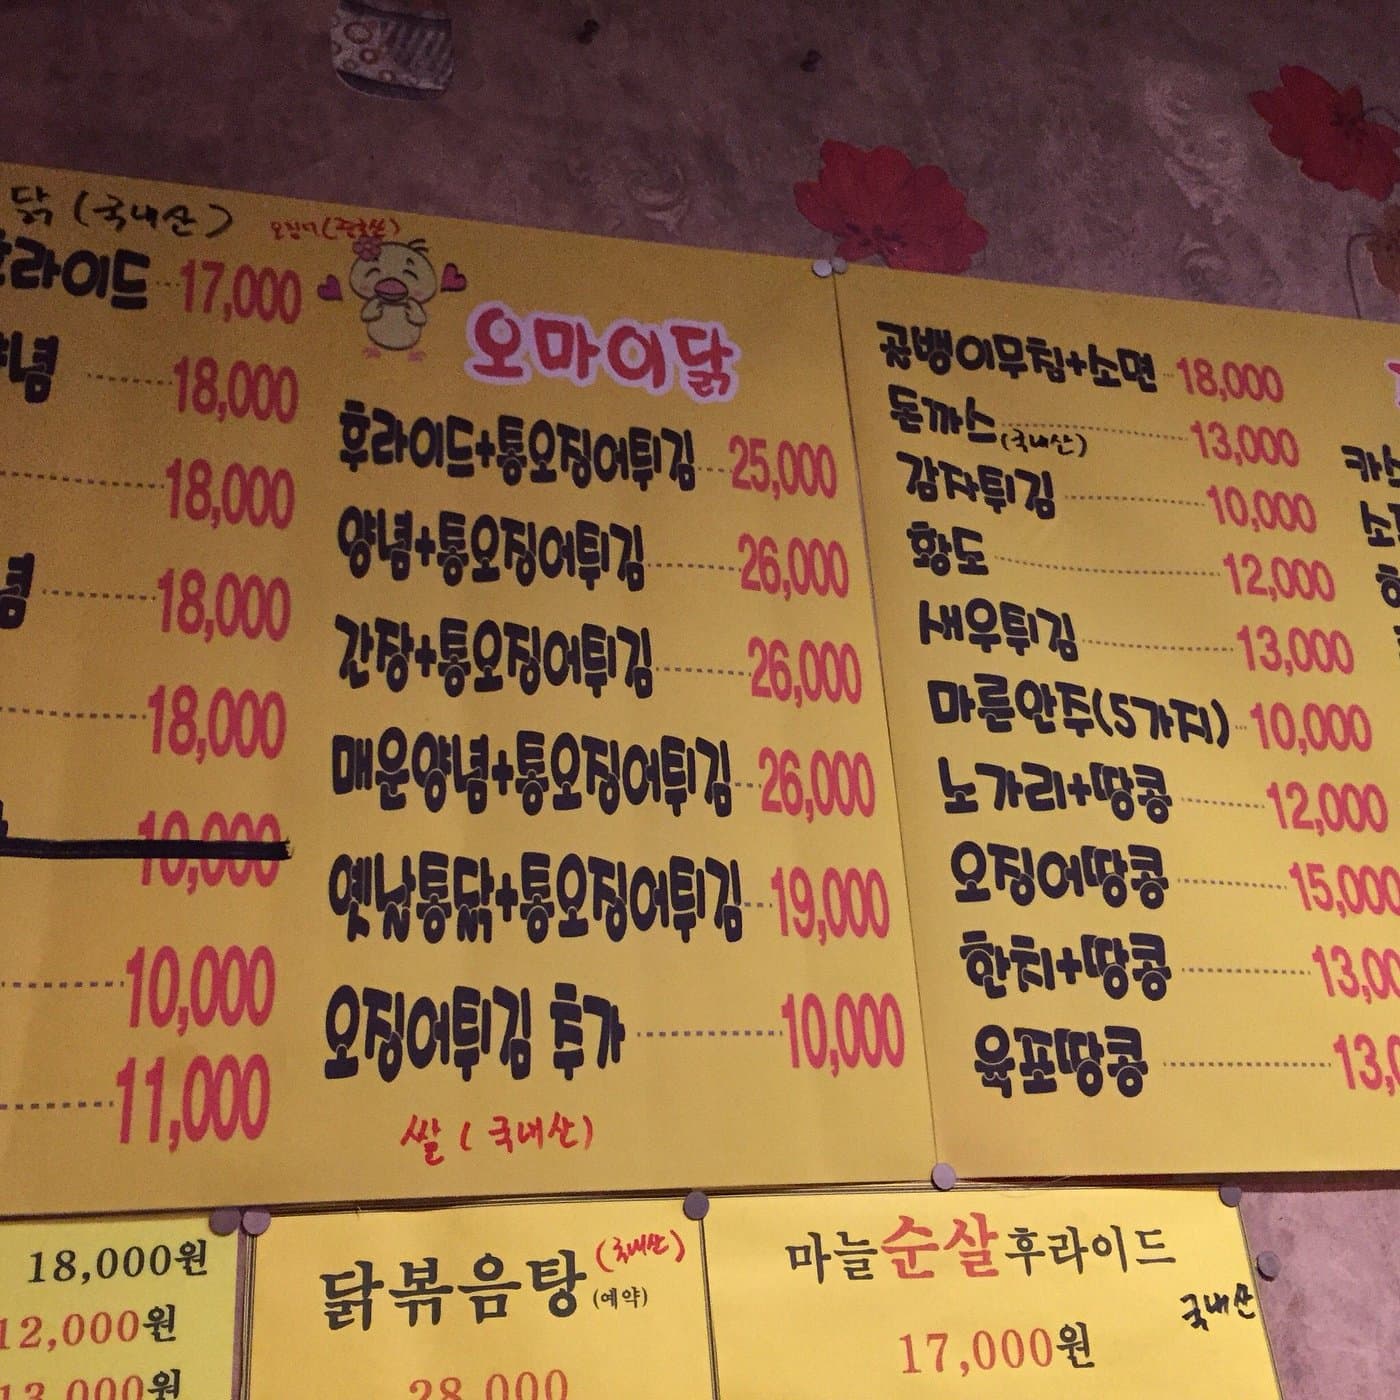 닭 (국내산)
후라이드 17,000
18,000
18,000
18,000
18,000
10,000
10,000
11,000
오마이닭
후라이드+통오징어튀김 25,000
양념+통오징어튀김 26,000
간장+통오징어튀김 26,000
매운양념+통오징어튀김 26,000
옛날통닭+통오징어튀김 19,000
오징어튀김 추가 10,000
쌀 (국내산)
골뱅이무침+소면 18,000
돈까스(국내산) 13,000
감자튀김 10,000
황도 12,000
새우튀김 13,000
마른안주(5가지) 10,000
노가리+땅콩 12,000
오징어땅콩 15,000
한치+땅콩
육포땅콩
18,000원
12,000원
13,000원
닭볶음탕 (국내산)
(예약)
28,000
마늘순살후라이드
국내산
17,000원